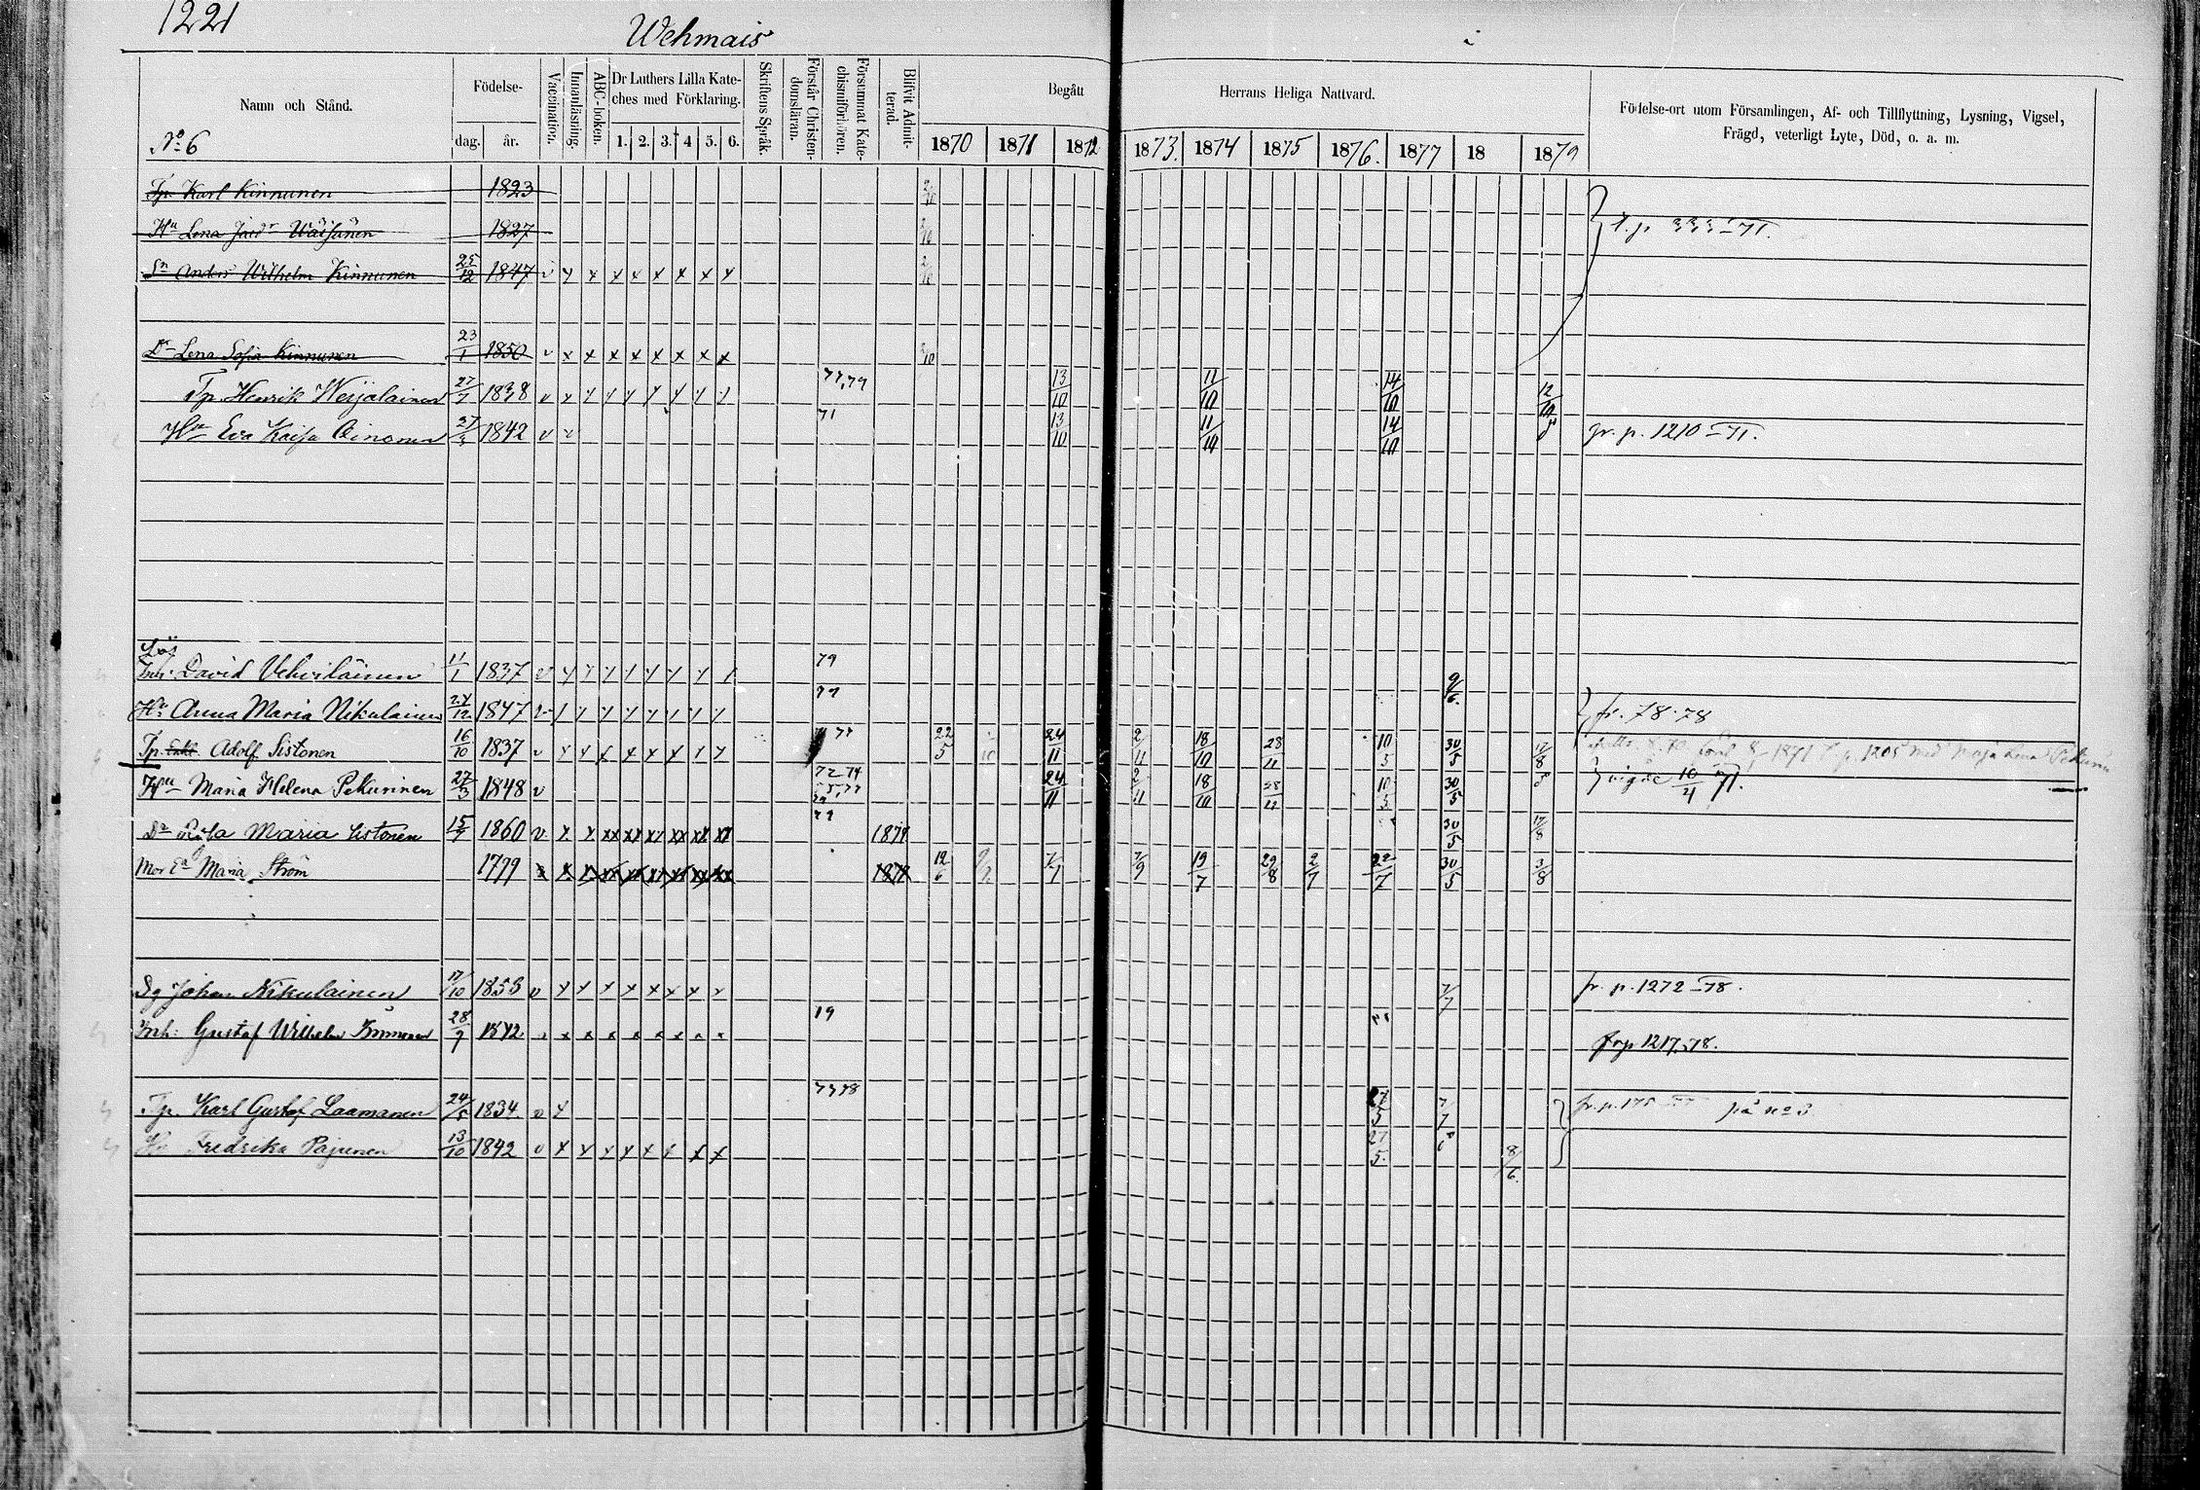 1221
Wehmais
Namn och Stånd.
Födelse-
dag.
år.
Vaccination.
Innanläsning.
ABC-boken.
Dr Luthers Lilla Kate-
ches med Förklaring.
1. 2. 3. 4 5. 6.
Skriftens Språk.
Förstår Christen-
domsläran.
Försummat Kate-
chismiförhören.
Blifvit Admit-
terad.
Begått
Herrans Heliga Nattvard.
1870 1871 1872 1873. 1874 1875 1876. 1877 18 1879
Födelse-ort utom Församlingen, Af- och Tillflyttning, Lysning, Vigsel,
Frägd, veterligt Lyte, Död, o. a. m.
No 6
Tp. Karl Kinnunen 1823
Hu Lena 1827 t. p. 333 71.
Sn Anders Wilhelm Kinnunen 25/12 1847 v x x x x x x x x
Dr Lena Sofia Kinnunen 23/1 1850 v x x x x x x x x
Tp. Henrik 27/7 1838 77,79 13/10 11/10 14/10 12/10
Hu Eva Kaisa Oinonen 1842 v 71 13/10 11/10 14/10 fr. p. 1210 71.
Inh. David Vehviläinen 11/1 1837 79 9/6.
Hu Anna Maria Nikulainen 24/12 1847 fr. 78.78
Tp. Adolf Sistonen 16/10 1837 v 22/5 24/11 2/11 18/10 28/11 10/5 30/5 17/8 1871 p. 1205 med Maja Lena
Hu Maria Helena Pekurinen 27/3 1848 v 72 74 24/11 2/11 18/10 28/11 10/5 30/5 vigde 10/4 71.
Dr Maria Sistonen 15/7 1860 v. x x xx xx xx xx xx xx 30/5 17/8
Mor Maria Ström 1799 12/6 7/9 19/7 29/8 2/7 22/7 30/5 3/8
Dg Johan Nikulainen 17/10 1855 v x x x x x x x 7/7 fr. p. 1272 78.
Inh: Gustaf Wilhelm Immonen 28/9 1842 x x x x x x 19 frp 1217.78.
Tp. Karl Gustaf Laamanen 24/5 1834. v 77 78 27/5 7/7 på no 3.
Hu Fredrika Pajunen 13/10 1842 v x x x x x x x x 27/5. 8/6.